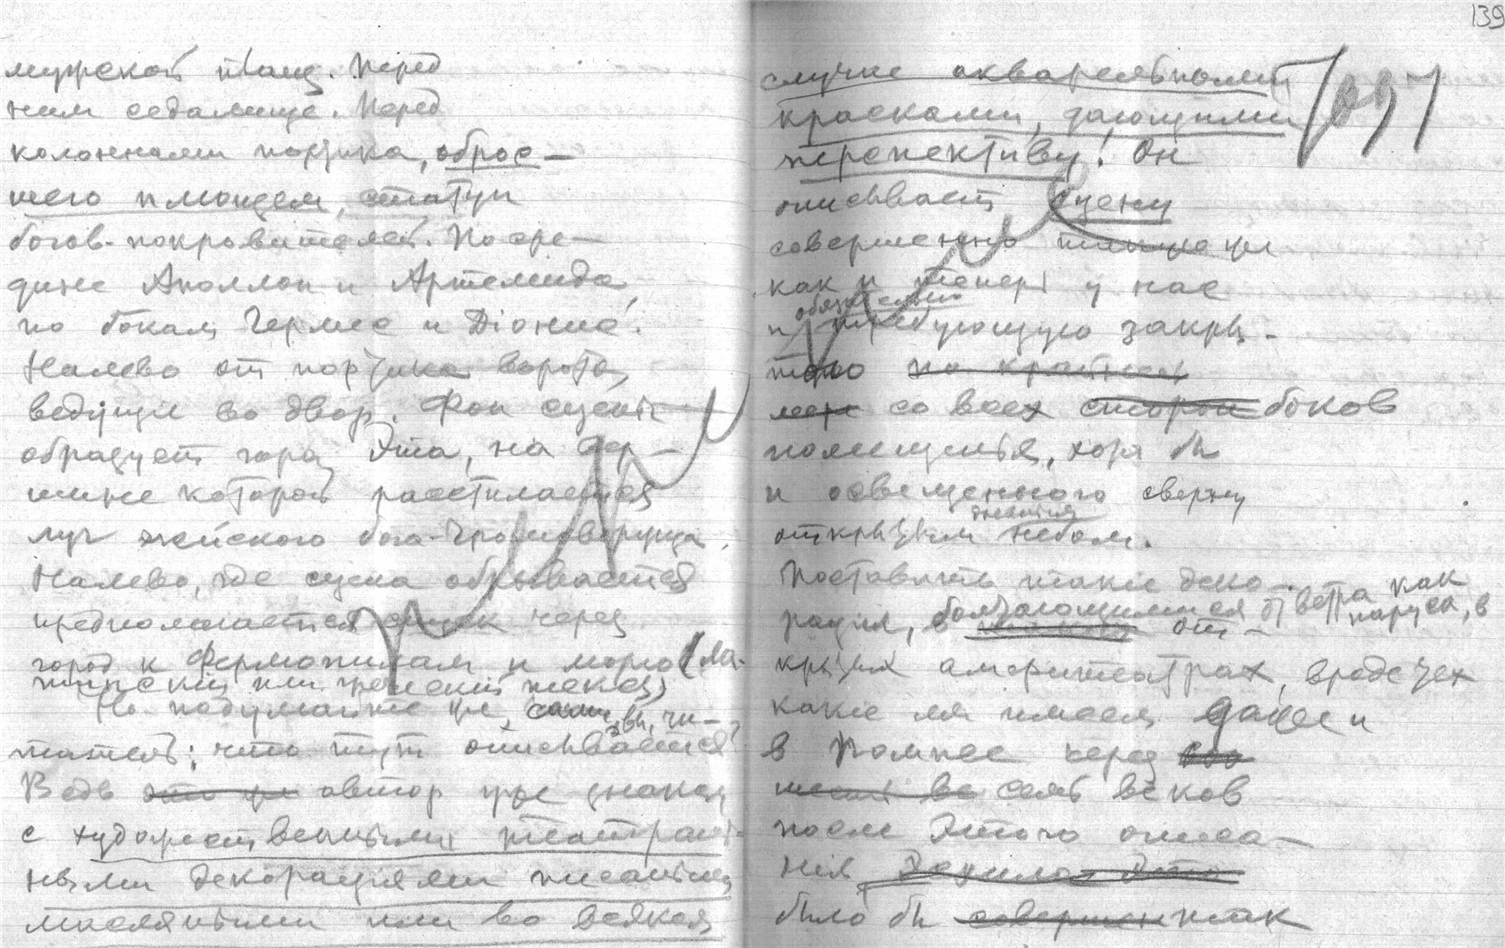 мужской плащ. Перед
ним седалище. Перед
колоннами портика, оброс–
шего плющем, статуи
богов-покровителей. Посре–
дине Аполлон и Артемида,
по бокам Гермес и Діонис.
Налево от портика ворота,
ведущие во двор. Фон сцены
образует гора Эта, на вер–
шине которой расстилается
луг эейского бога-Громовержца.
Налево, где сцена обрывается
предполагается спуск через
город к Фермопилам и морю (
или греческий текст)
Но подумайте же, вы, чи–
татель: что тут описывается?
Ведь автор уже знаком
с художественными театраль-
ными декорациями писаными
масляными или во всяком
139
случае акварельными
красками, дающими
перспективу! Он
описывает сцену
совершенно
как и теперь у нас
обязательно
и требующую закры-
того по крайней
мере со всех сторон боков
помещенья, хотя бы
и освещенного сверху
открытым небом.
Поставить такие деко–
рации, болтающимися от ветра как
паруса, в
от–
крытых амфитеатрах, вроде тех
какие мы имеем даже и
в Помпее через
семь веков
после этого описа–
ния,
было бы совершен так
1091